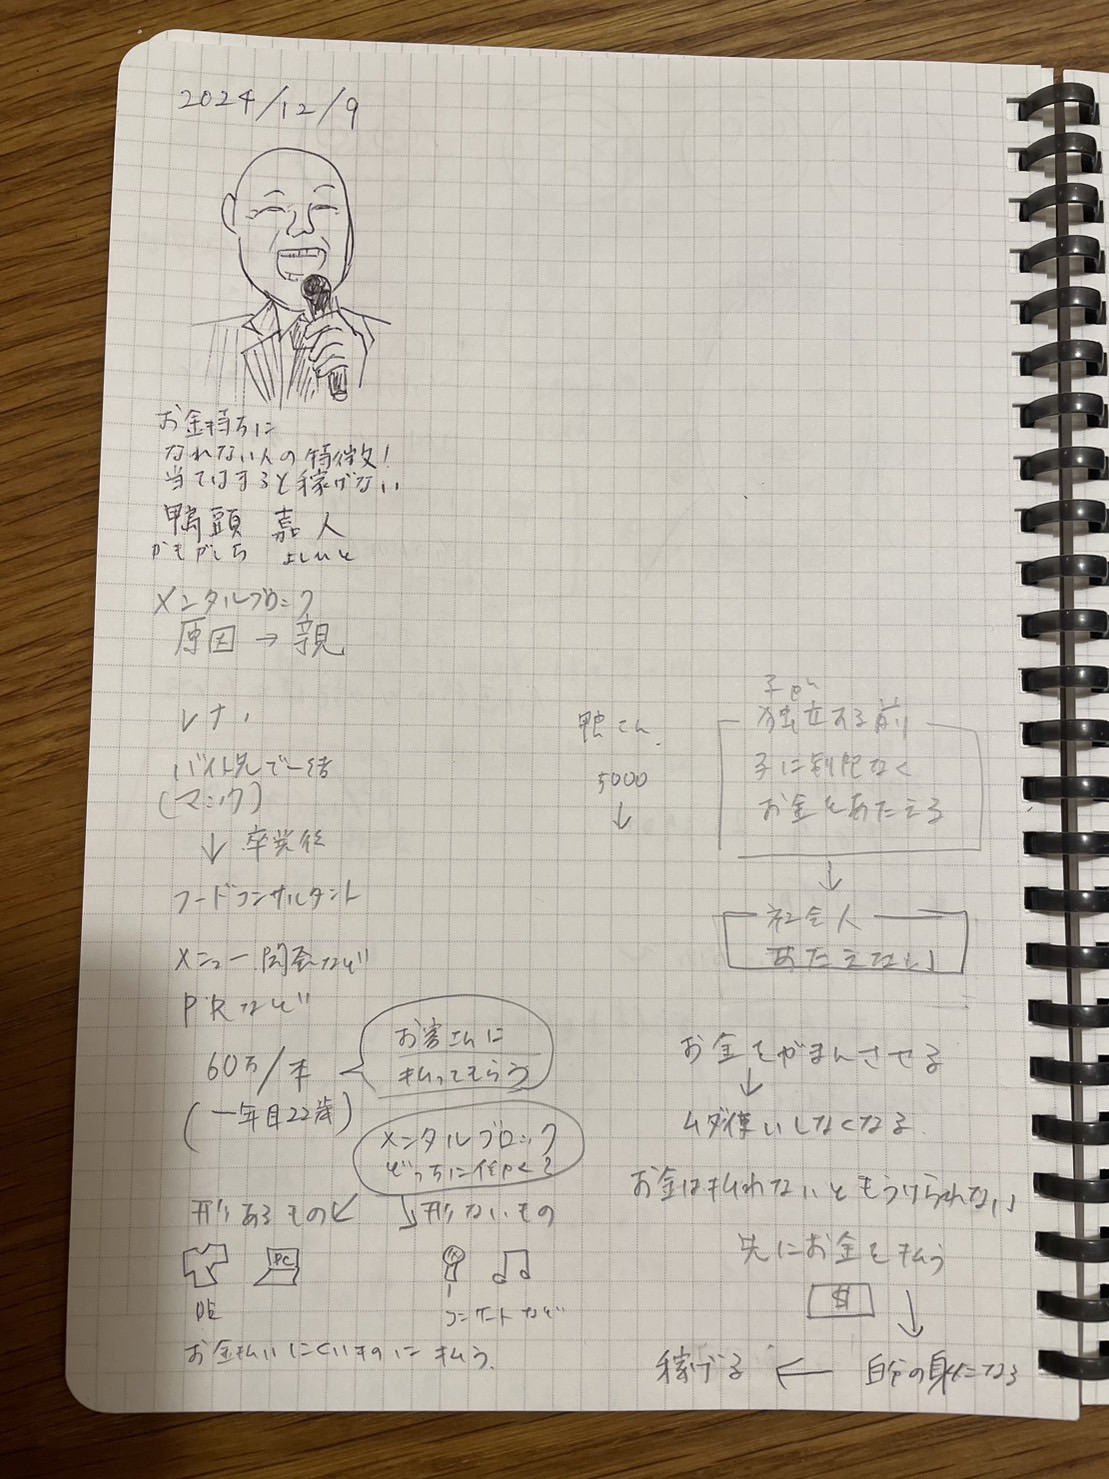 2024/12/9
お金持ちに
なれない人の特徴!
当てはまると稼げない
鴨頭 嘉人
かもがしら よしひと
メンタルブロック
原因→親
バイト先で一緒
(マック)
↓卒業後
フードコンサルタント
メニュー開発など
PRなど
60万/本
(一年目22歳)
お客さんに
払ってもらう
メンタルブロック
どっちに
形あるもの
形ないもの
PC
コンサートなど
お金払いにくいものに払う.
鴨さん
5000
↓
子ども
独立する前
子に制限なく
お金をあたえる
↓
社会人
あたえない
お金をがまんさせる
↓
ムダ使いしなくなる.
お金は払わないともうけられない
先にお金を払う
$
↓
稼げる ← 自分の身になる